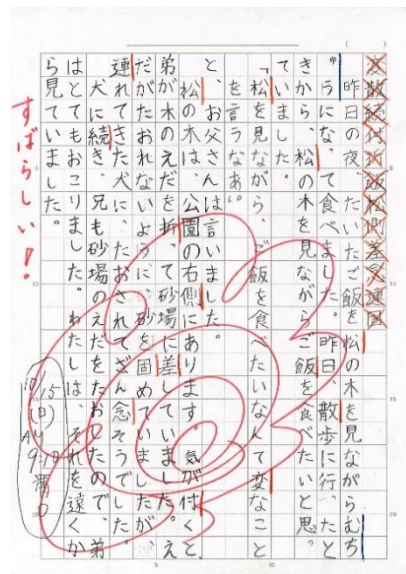 変散続付折飯松側差念連固
昨日の夜、たいたご飯を松の木を見ながらむち
ゅうになって食べました。昨日、散歩に行ったと
きから、松の木を見ながらご飯を食べたいと思っ
ていました。
「松を見ながら、ご飯を食べたいなんて変なこと
を言うなあ。」
と、お父さんは言いました。
松の木は、公園の右側にあります。気が付くと、
弟が木のえだを折って砂場に差していました。え
だがたおれないように、砂を固めていましたが、
連れてきた犬に、たおされてざん念そうでした。
犬に続き、兄も砂場のえだをたおしたので、弟
はとてもおこりました。わたしは、それを遠くか
ら見ていました。
すばらしい!
10/15
AM